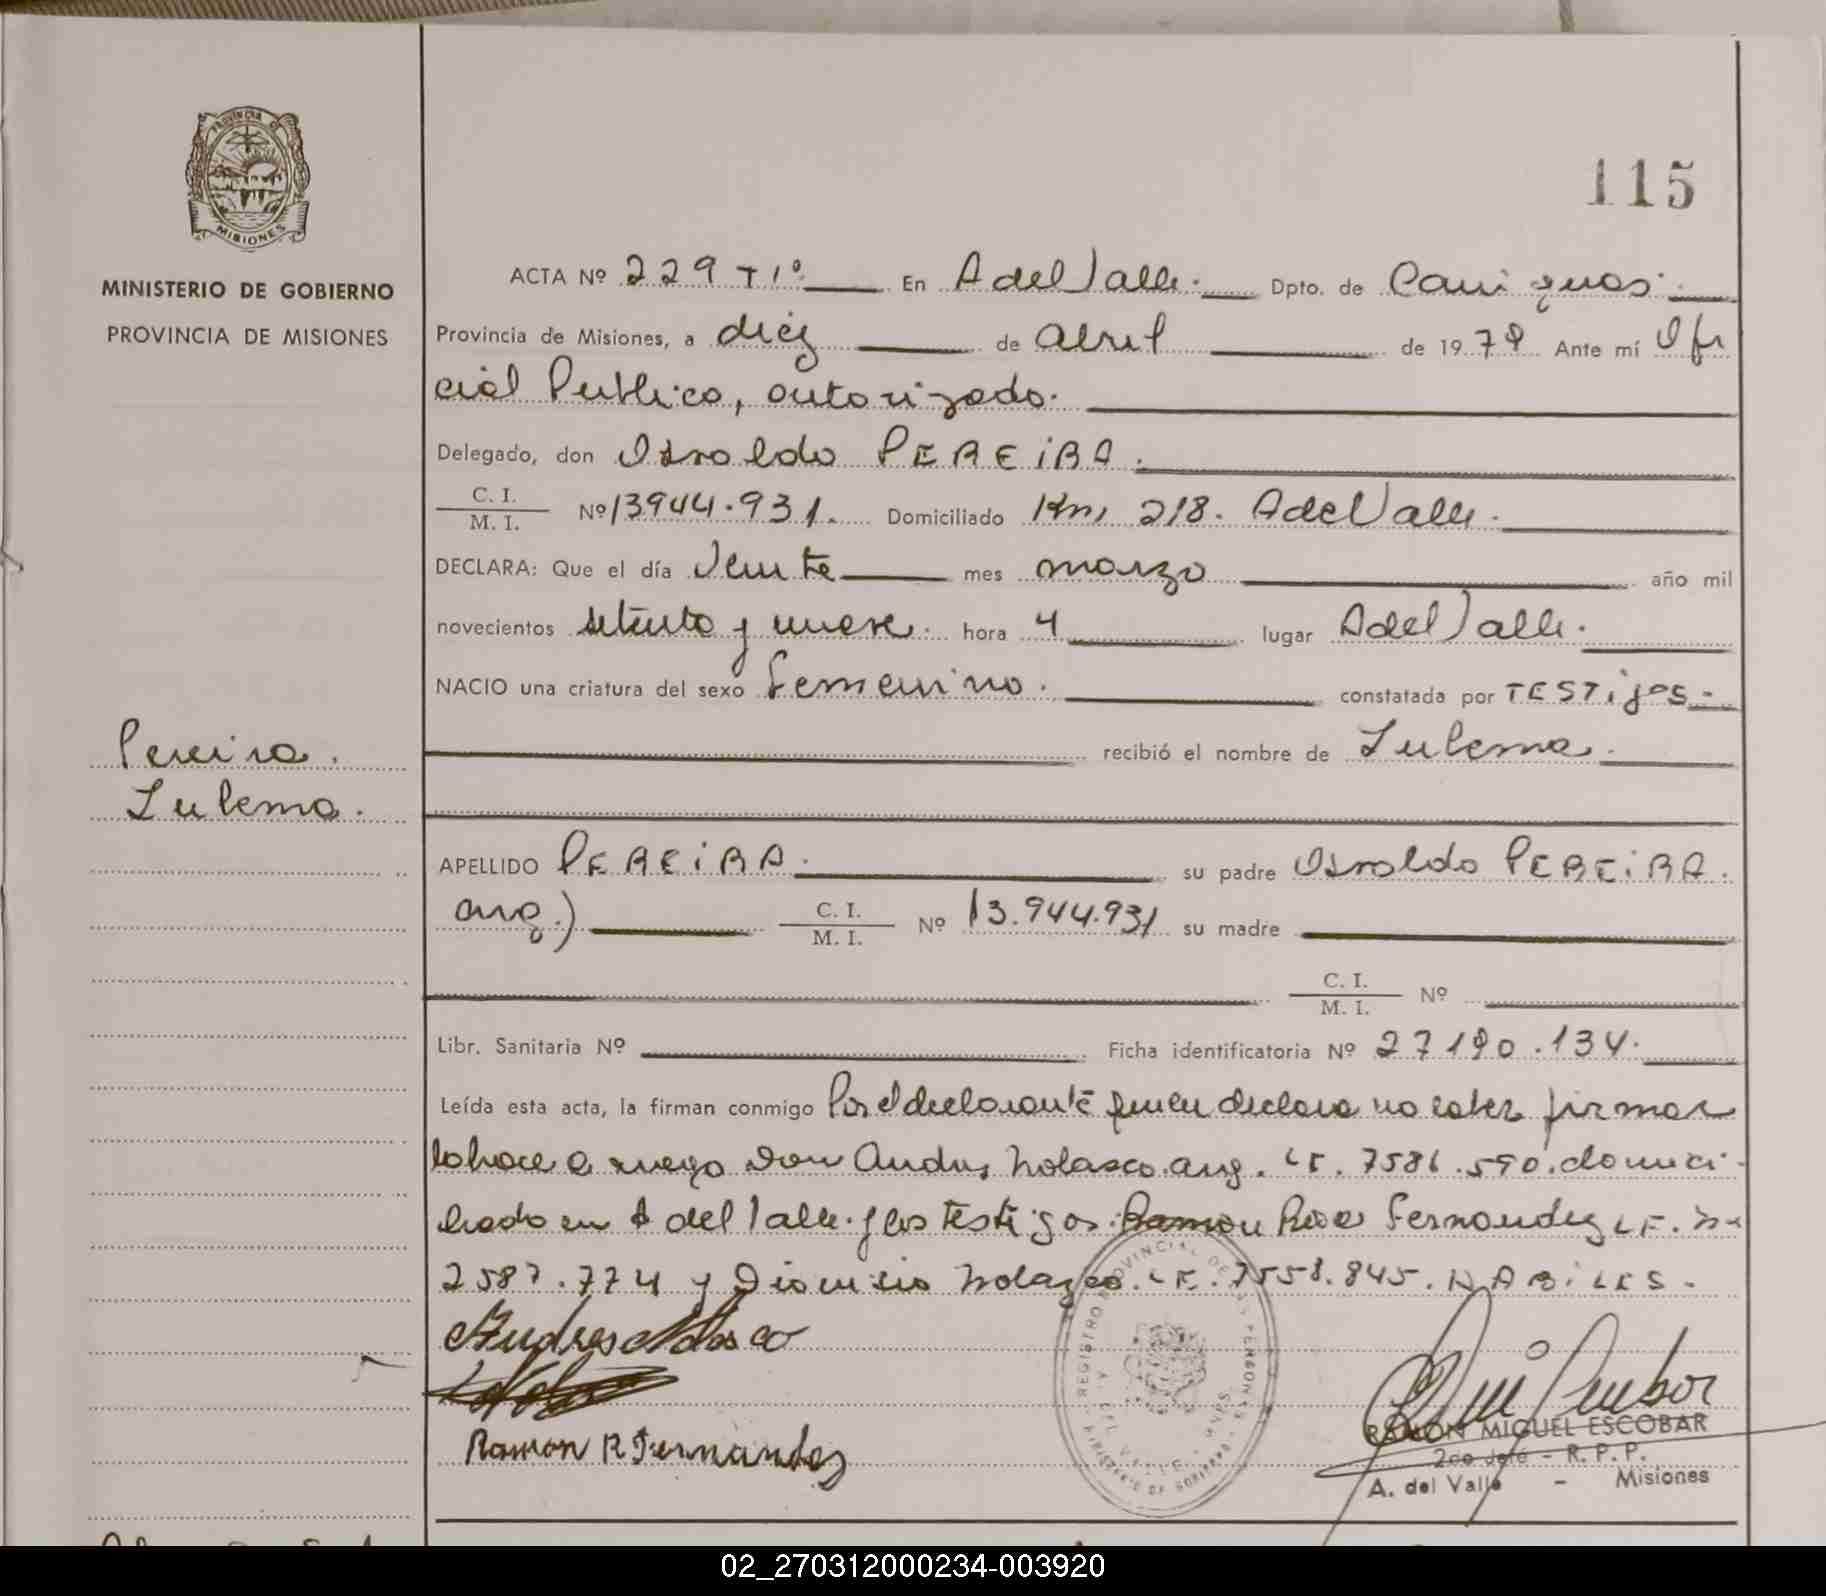 PROVINCIA DE
MISIONES
MINISTERIO DE GOBIERNO
PROVINCIA DE MISIONES
115
ACTA Nº 229 T 1º En A del Valle. Dpto. de Cainguas.
Provincia de Misiones, a diez de abril de 1979 Ante mí Ofi
cial Publico, autorizado.
Delegado, don Osvaldo PEREiRA.
C. I.
M. I. Nº 13944.931. Domiciliado Km 218. A del Valle.
DECLARA: Que el día veinte mes marzo año mil
novecientos setenta y nueve. hora 4 lugar A del Valle.
NACIO una criatura del sexo femenino. constatada por TESTigos-
recibió el nombre de Zulema.
Pereira.
Zulema.
APELLIDO PEREiRA. su padre Osvaldo PEREiRA.
arg.) C. I.
M. I. Nº 13.944.931 su madre
C. I.
M. I. Nº
Libr. Sanitaria Nº Ficha identificatoria Nº 27190.134.
Leída esta acta, la firman conmigo Por el declarante quien declara no saber firmar
lo hace a ruego Don Andres Nolasco. arg. LE. 7586.590. domici-
liado en A del Valle. y los testigos. Ramon Rosa Fernandez LE. Nº
2587.774 y Dionisio Nolazco. LE. 7558.845. HABiLES.
Andres Nolasco
Ramon R Fernandez
REGISTRO PROVINCIAL DE LAS PERSONAS
A. DEL VALLE - MNES.
MINISTERIO DE GOBIERNO
RAMON MIGUEL ESCOBAR
2do Jefe - R. P. P.
A. del Valle - Misiones
02_270312000234-003920